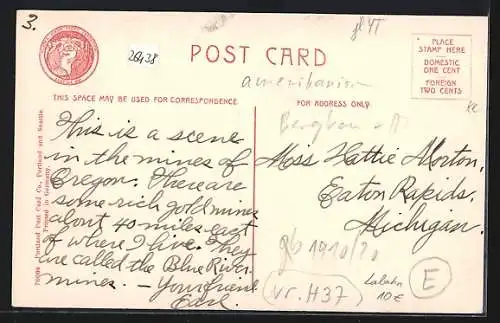 3.
26438
gl 4T
POST CARD
amerikanisch
PLACE
STAMP HERE
DOMESTIC
ONE CENT
FOREIGN
TWO CENTS
THIS SPACE MAY BE USED FOR CORRESPONDENCE
FOR ADDRESS ONLY
This is a scene
in the mines of
Oregon. There are
some rich gold mines
about 40 miles east
of where I live. They
are called the Blue River
mines. – Your friend
Earl.
Portland Post Card Co., Portland and Seattle.
Printed in Germany.
Bergbau
Miss Hattie Morton,
Eaton Rapids,
Michigan.
gb 1910/20
vr. H37
10 €
E